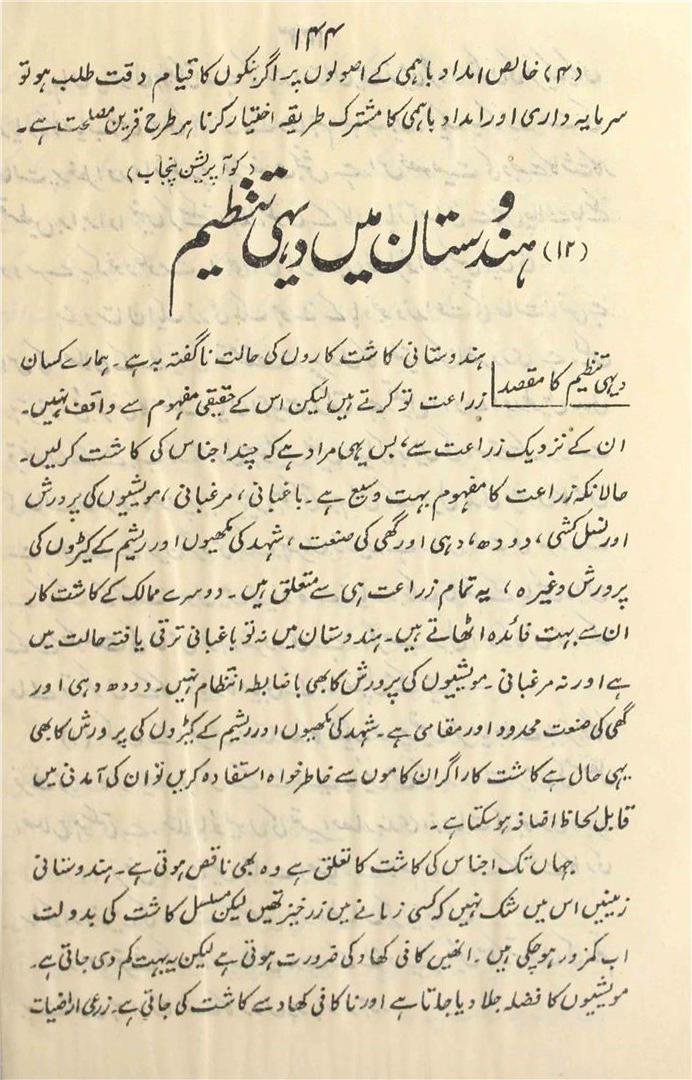 ۱۴۴
(۴) خالص امداد باہمی کے اصولوں پر اگر بنکوں کا قیام دقت طلب ہو تو
سرمایہ داری اور امداد باہمی کا مشترک طریقہ اختیار کرنا ہر طرح قرین مصلحت ہے۔
(کوآپریشن پنجاب)
(۱۲) ہندوستان میں دیہی تنظیم
دیہی تنظیم کا مقصد
ہندوستانی کاشت کاروں کی حالت ناگفتہ بہ ہے۔ ہمارے کسان
زراعت تو کرتے ہیں لیکن اس کے حقیقی مفہوم سے واقف نہیں۔
ان کے نزدیک زراعت سے، بس یہی مراد ہے کہ چند اجناس کی کاشت کر لیں۔
حالانکہ زراعت کا مفہوم بہت وسیع ہے۔ باغبانی، مرغبانی، مویشیوں کی پرورش
اور نسل کشی، دودھ، دہی اور گھی کی صنعت، شہد کی مکھیوں اور ریشم کے کیڑوں کی
پرورش وغیرہ، یہ تمام زراعت ہی سے متعلق ہیں۔ دوسرے ممالک کے کاشت کار
ان سے بہت فائدہ اٹھاتے ہیں۔ ہندوستان میں نہ تو باغبانی ترقی یافتہ حالت میں
ہے اور نہ مرغبانی۔ مویشیوں کی پرورش کا بھی باضابطہ انتظام نہیں۔ دودھ دہی اور
گھی کی صنعت محدود اور مقامی ہے۔ شہد کی مکھیوں اور ریشم کے کیڑوں کی پرورش کا بھی
یہی حال ہے کاشت کار اگر ان کاموں سے خاطر خواہ استفادہ کریں تو ان کی آمدنی میں
قابل لحاظ اضافہ ہو سکتا ہے۔
جہاں تک اجناس کی کاشت کا تعلق ہے وہ بھی ناقص ہوتی ہے۔ ہندوستانی
زمینیں اس میں شک نہیں کہ کسی زمانے میں زرخیز تھیں لیکن مسلسل کاشت کی بدولت
اب کمزور ہو چکی ہیں۔ انھیں کافی کھاد کی ضرورت ہوتی ہے لیکن یہ بہت کم دی جاتی ہے۔
مویشیوں کا فضلہ جلا دیا جاتا ہے اور ناکافی کھاد سے کاشت کی جاتی ہے۔ زرعی اراضیات